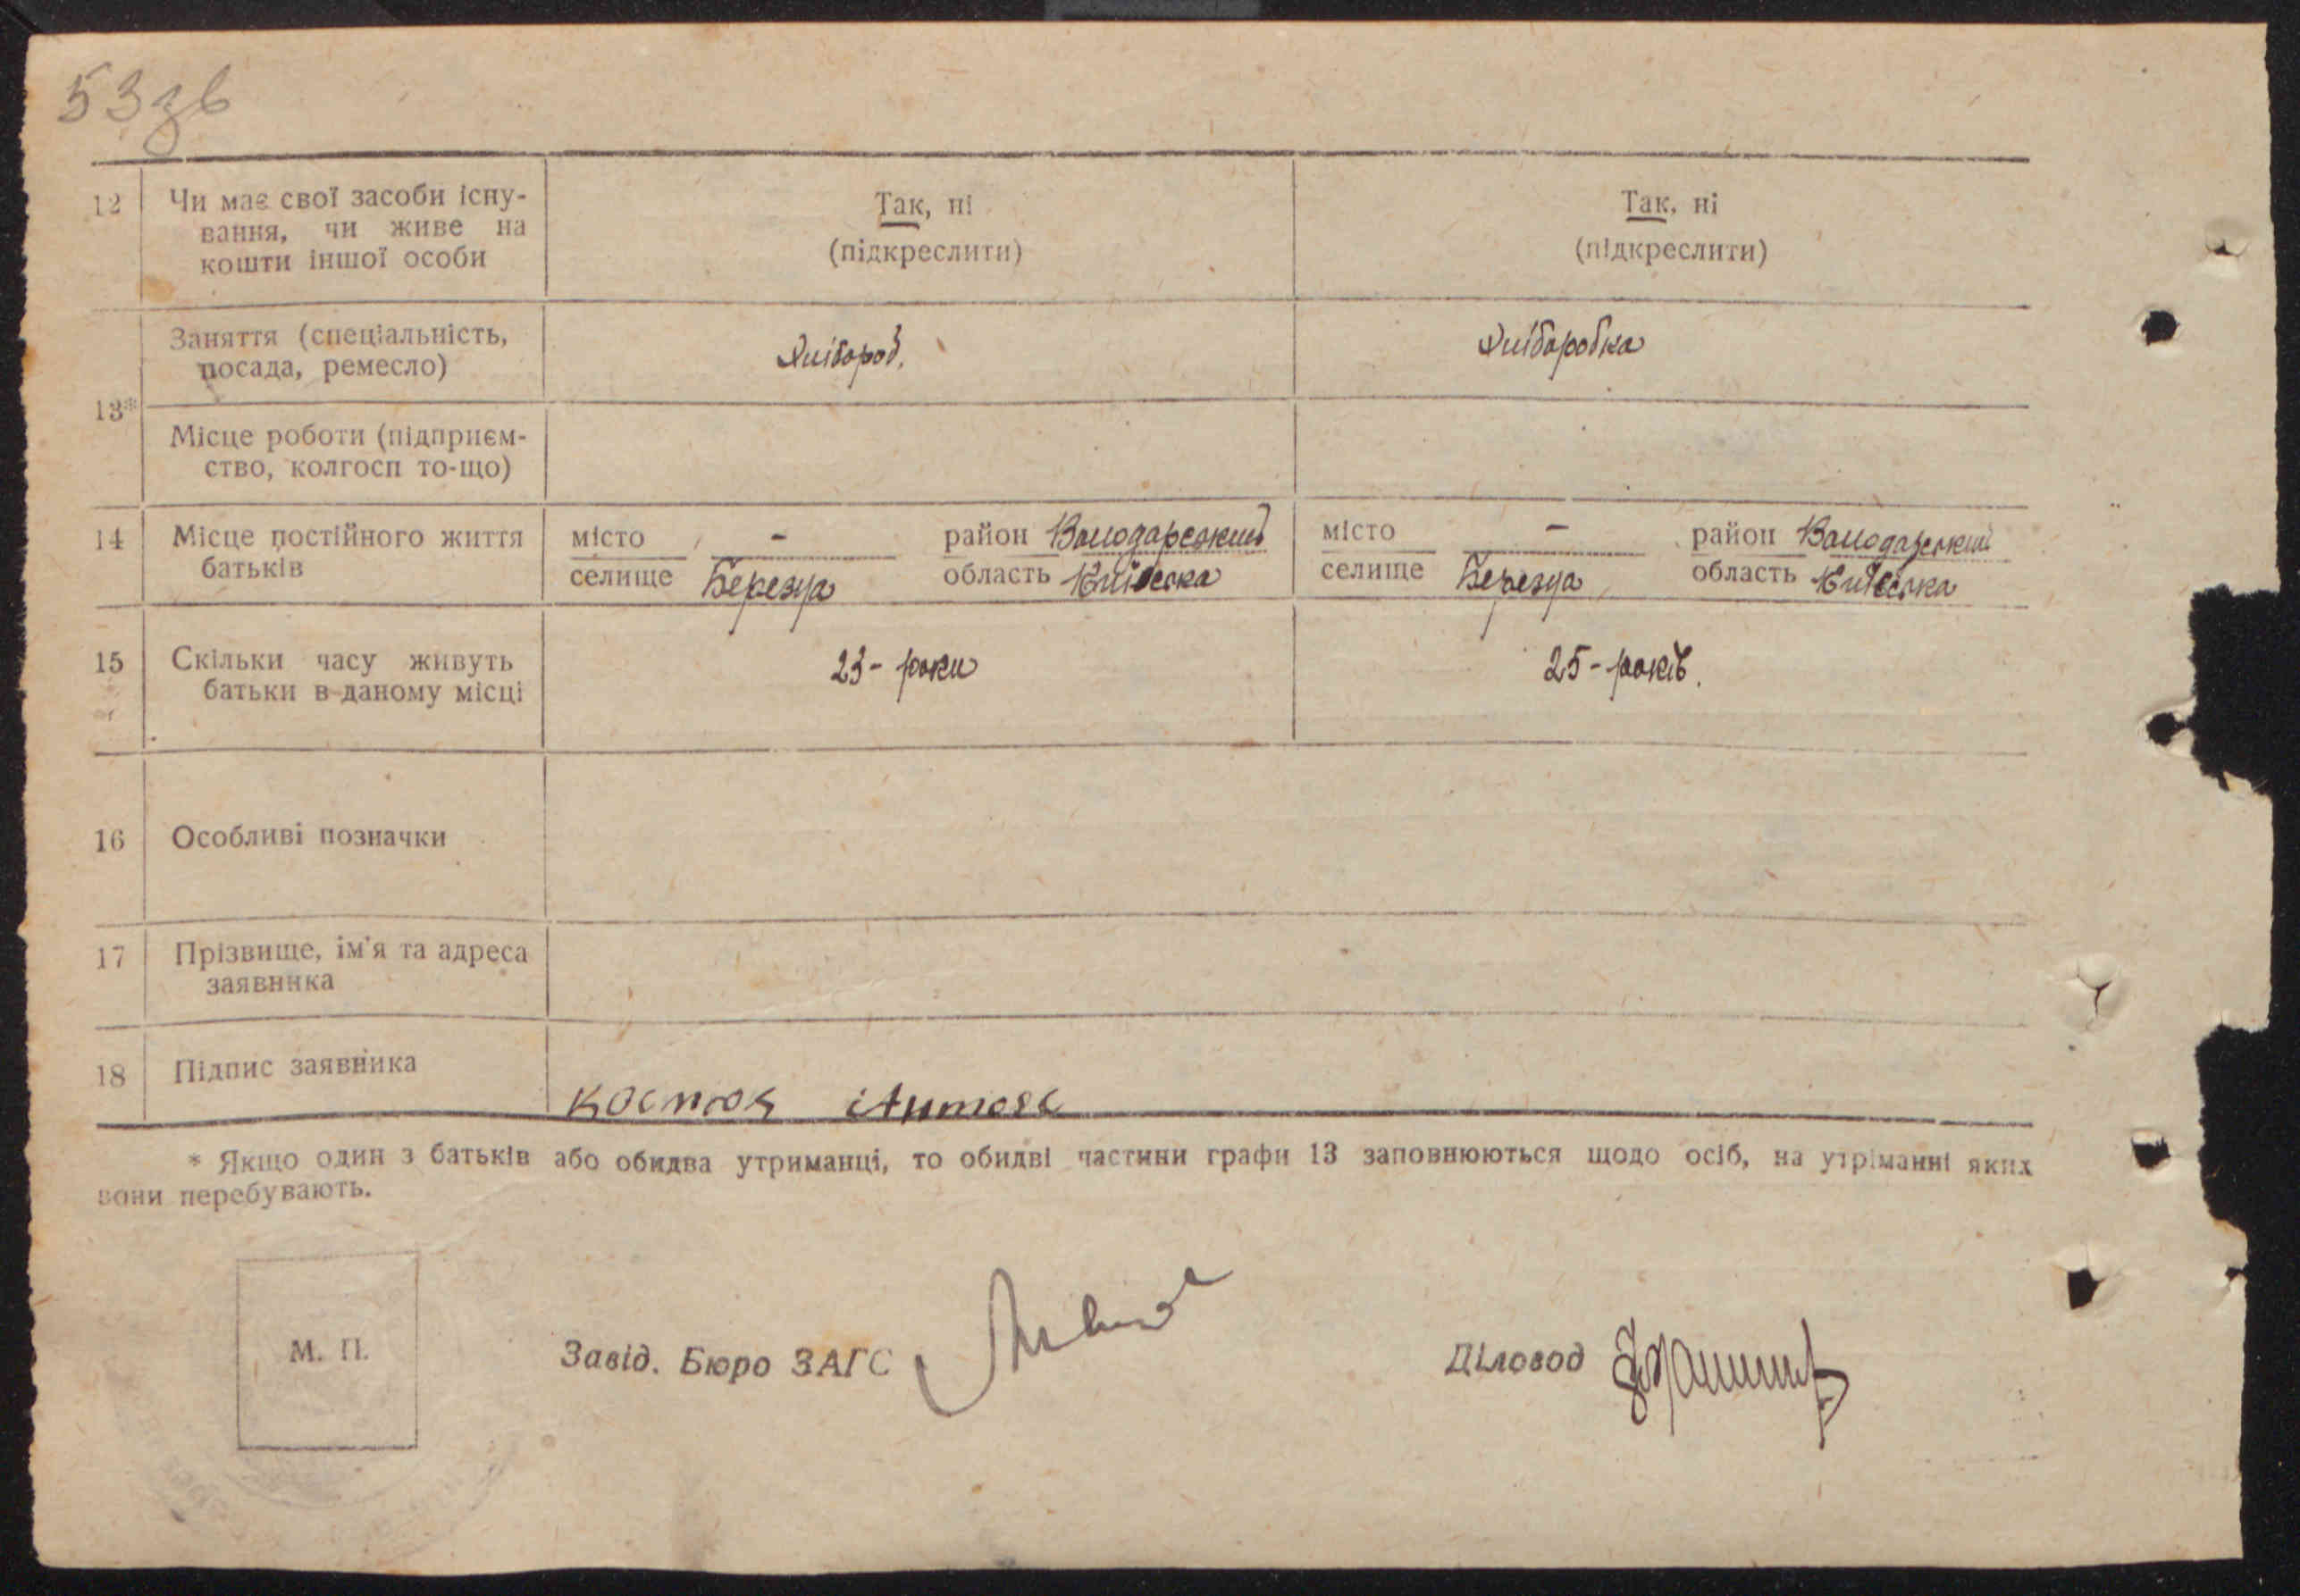 53 зв
12 Чи має свої засоби існу- Так, ні Так, ні
вання, чи живе на (підкреслити) (підкреслити)
кошти іншої особи
13* Заняття (спеціальність, Хлібороб. Хліборобка
посада, ремесло)
Місце роботи (підприєм-
ство, колгосп то-що)
14 Місце постійного життя місто - район Володарський місто - район Володарський
батьків селище Березна область Київська селище Березна область Київська
15 Скільки часу живуть 23 - роки 25 - років.
батьки в даному місці
16 Особливі позначки
17 Прізвище, ім'я та адреса
заявника
18 Підпис заявника Костюк
* Якщо один з батьків або обидва утриманці, то обидві частини графи 13 заповнюються щодо осіб, на утріманні яких
вони перебувають.
М. П. Завід. Бюро ЗАГС Діловод